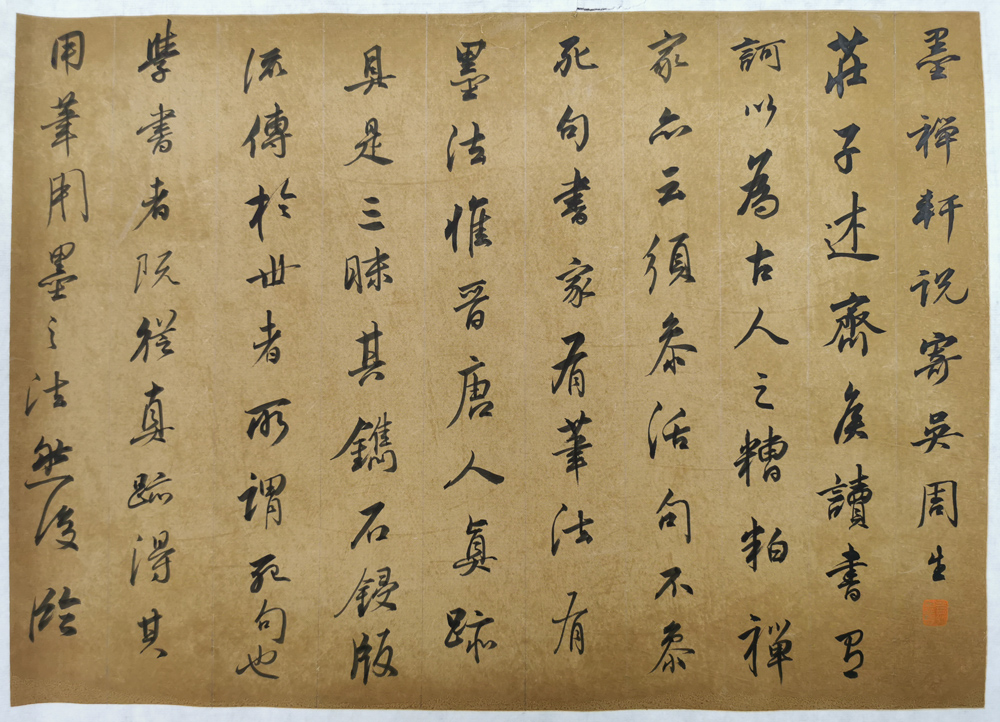 墨禪軒说寄吳周生
莊子述齊侯讀書有
訶以為古人之糟粕禪
家亦云須叅活句不叅
死句書家有筆法有
墨法惟晉唐人真跡
具是三昧其鐫石鋟版
流傳於世者所謂死句也
學書者既從真跡得其
用筆用墨之法然後臨